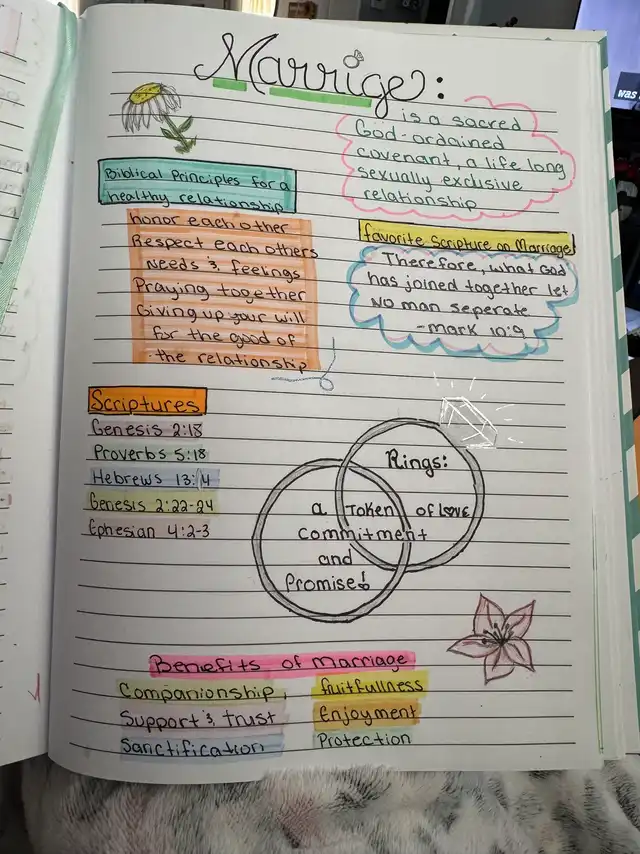 Marrige:
is a sacred
God-ordained
covenant, a life long
sexually exclusive
relationship
Biblical Principles for a
healthy relationship
honor each other
Respect each others
needs & feelings
Praying together
Giving up your will
for the good of
the relationship
favorite Scripture on Marriage
Therefore, what God
has joined together let
no man seperate
-mark 10:9
Scriptures
Genesis 2:18
Proverbs 5:18
Hebrews 13:4
Genesis 2:22-24
Ephesian 4:2-3
Rings:
a Token of love
commitment
and
Promise!
Benefits of marriage
Companionship fruitfullness
Support & trust Enjoyment
Sanctification Protection
was